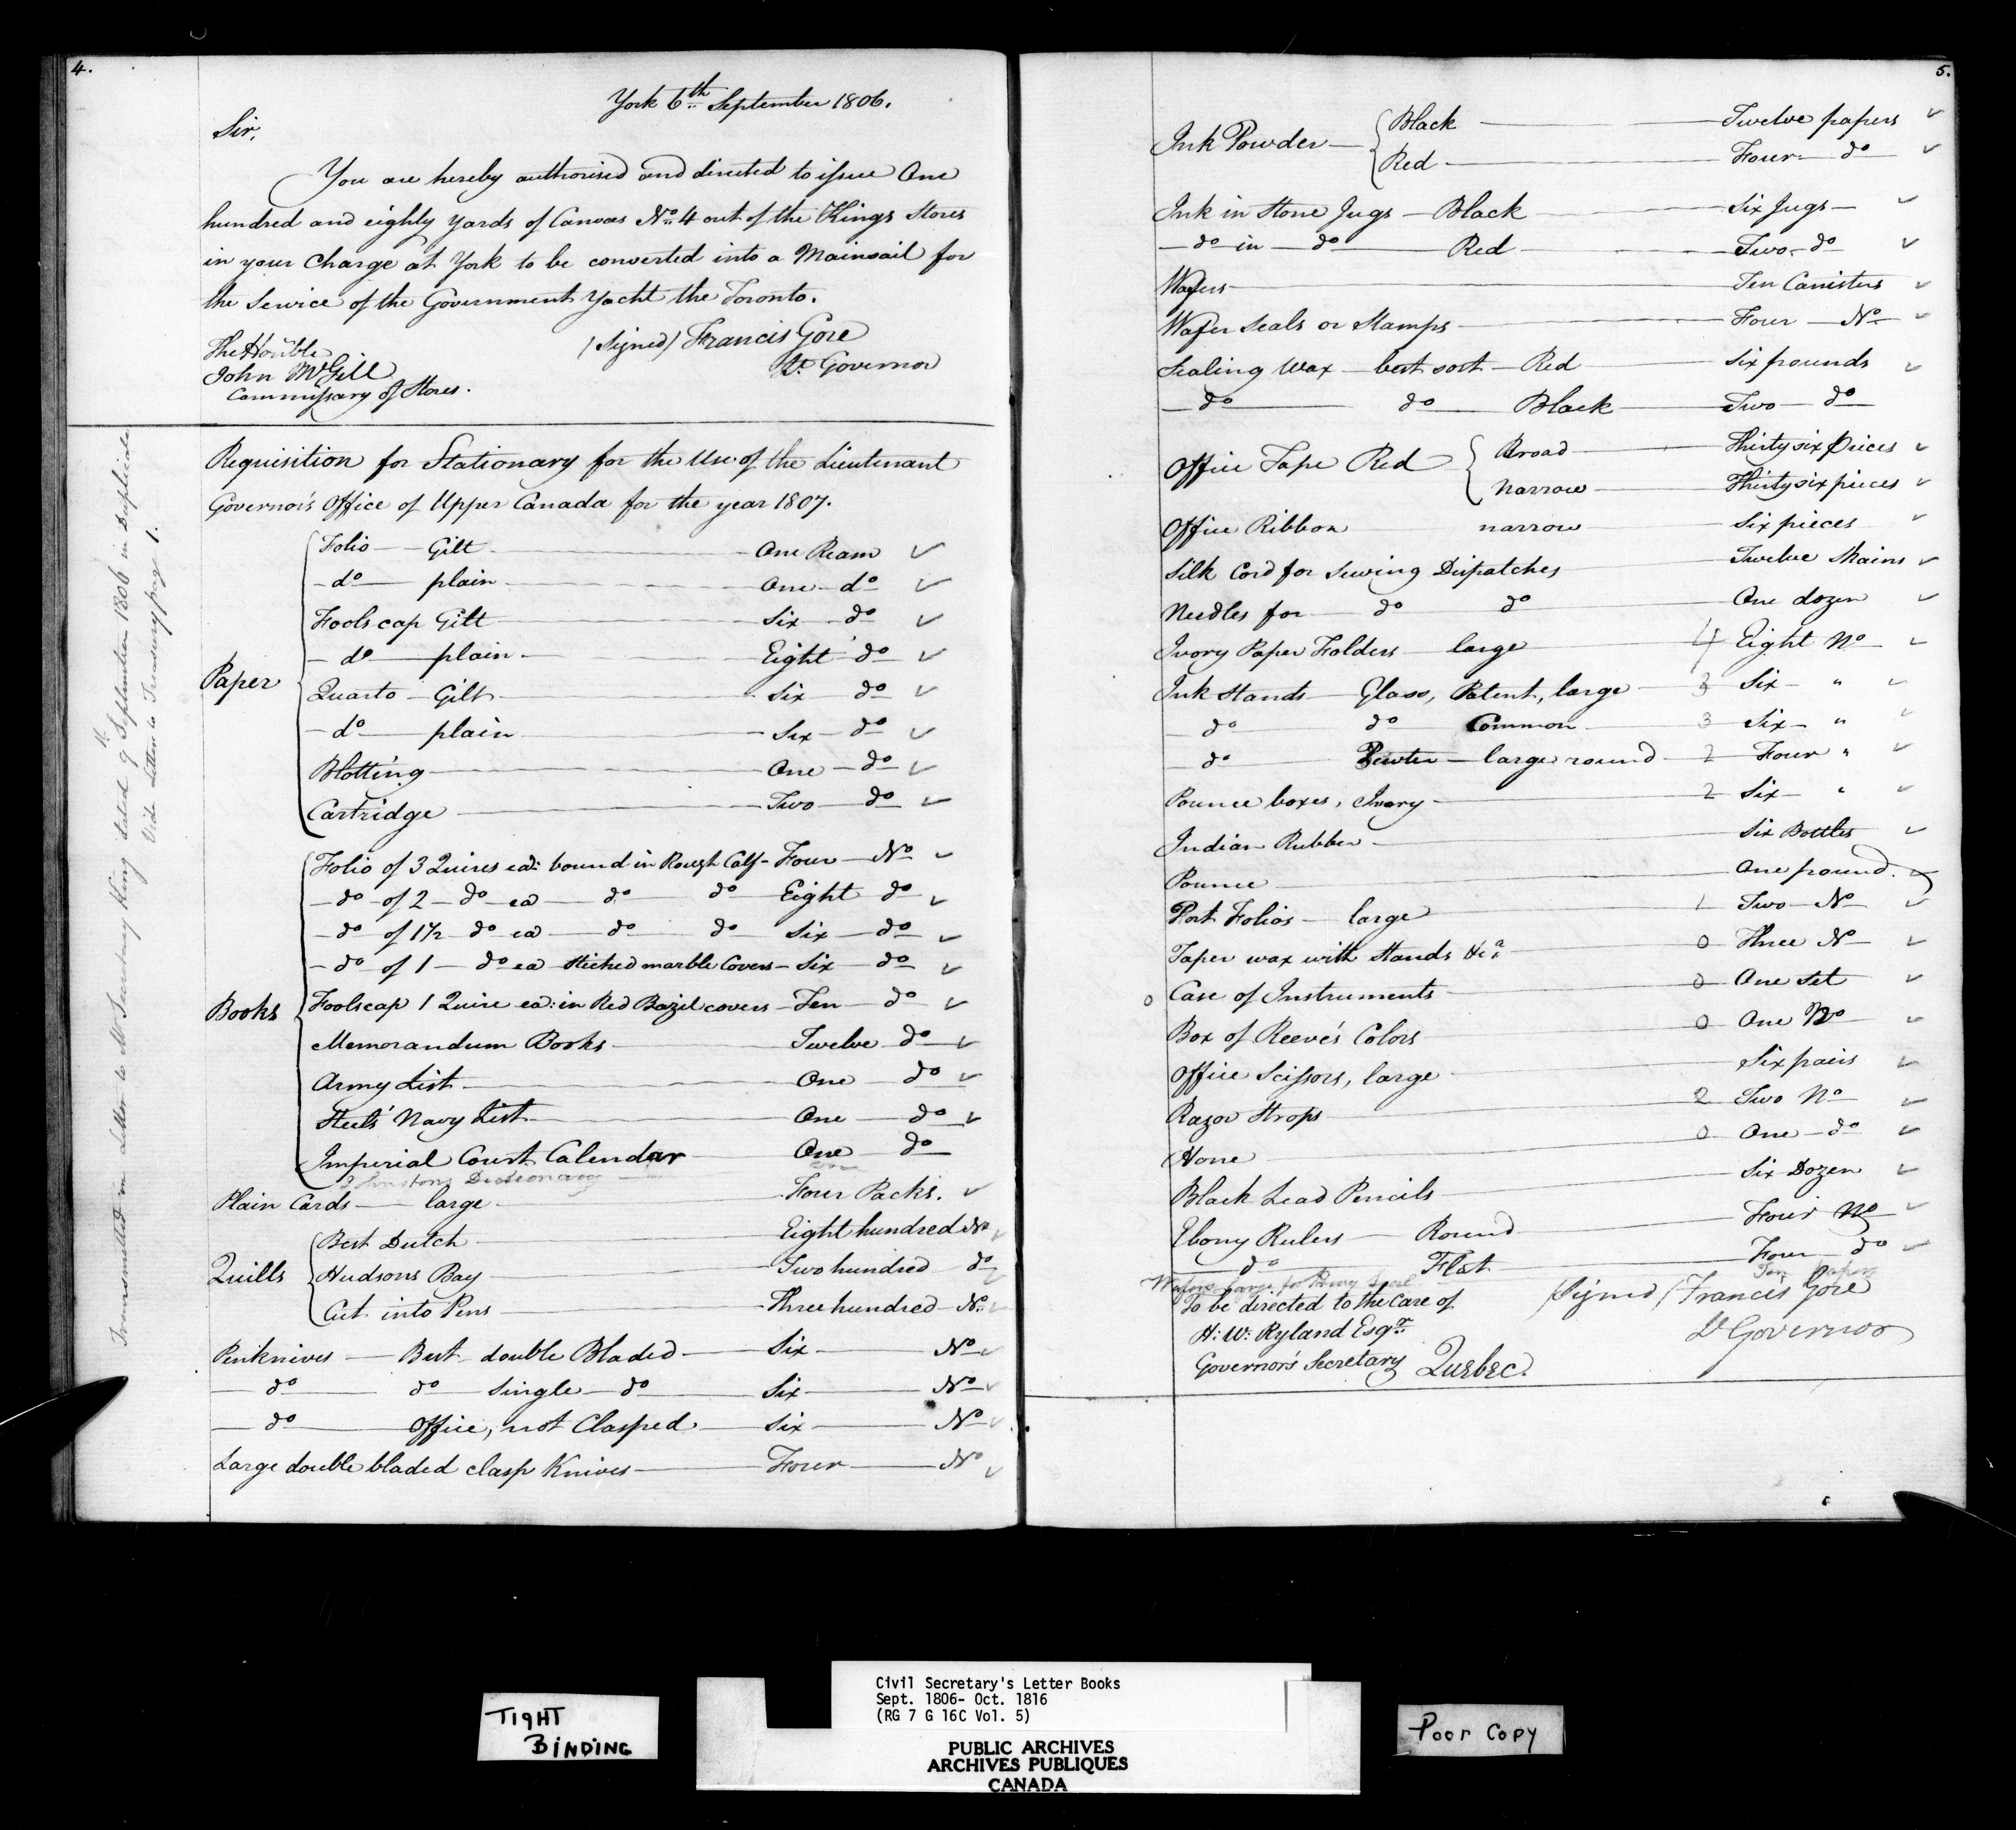 4.
York 6th September 1806.
Sir,
You are hereby authorised and directed to issue One
hundred and eighty yards of Canvas No. 4 out of the Kings Stores
in your Charge at York to be converted into a Mainsail for
the Service of the Government Yacht the Toronto.
(Signed) Francis Gore
Lt. Governor
The Honble
John McGill
Commissary of Stores.
Requisition for Stationary for the Use of the Lieutenant
Governor's Office of Upper Canada for the year 1807.
Paper
Folio — Gilt — One Ream ✓
— do — plain — One — do ✓
Foolscap Gilt — Six — do ✓
— do — plain — Eight do ✓
Quarto — Gilt — Six do ✓
— do — plain — Six — do ✓
Blotting — One — do ✓
Cartridge — Two — do ✓
Books
Folio of 3 Quires ea: bound in Rough Calf — Four — No ✓
— do — of 2 — do — ea — do — do Eight do ✓
— do of 1½ do ea — do — do Six — do ✓
— do of 1 — do ea Stiched marble Covers — Six — do ✓
Foolscap 1 Quire ea: in Red Bazil covers — Ten — do ✓
Memorandum Books — Twelve do ✓
Army List — One — do ✓
Steels' Navy List — One — do ✓
Imperial Court Calendar — One do
Johnstons Dictionary — one
Plain Cards — large — Four Packs. ✓
Quills
Best Dutch — Eight hundred No ✓
Hudsons Bay — Two hundred do ✓
Cut into Pens — Three hundred — No ✓
Penknives — Best double Bladed — Six — No ✓
— do — do — single — do — Six — No ✓
— do — Office, not Clasped — Six — No ✓
Large double bladed clasp Knives — Four — No ✓
Transmitted in Letter to Mr Secretary King dated 9th September 1806 in Duplicate
Vide Letters to Treasury page 1.
5.
Ink Powder —
Black — Twelve papers ✓
Red — Four — do ✓
Ink in Stone Jugs — Black — Six Jugs — ✓
— do in — do — Red — Two — do ✓
Wafers — Ten Canisters ✓
Wafer Seals or Stamps — Four — No ✓
Sealing Wax — best sort — Red — Six pounds ✓
— do — do — Black — Two — do
Office Tape Red
Broad — Thirty six pieces ✓
narrow — Thirty six pieces ✓
Office Ribbon narrow — Six pieces ✓
Silk Cord for Sewing Dispatches — Twelve Skains ✓
Needles for — do do — One dozen ✓
Ivory Paper Folders — large — 4 Eight No ✓
Ink Stands — Glass, Patent, large — 3 Six — " ✓
do do Common — 3 Six — " ✓
— do Pewter — large round — 2 Four " ✓
Pounce boxes, Ivory — 2 Six — " ✓
Indian Rubber — Six Bottles ✓
Pounce — One pound. ✓
Port Folios — large — 1 Two — No ✓
Taper wax with Stands — 0 Three No ✓
0 Case of Instruments — 0 One Set ✓
Box of Reeve's Colors — 0 One No ✓
Office Scissors, large — Six pairs ✓
Razor Strops — 2 Two No ✓
Hone — 0 One — do ✓
Black Lead Pencils — Six Dozen ✓
Ebony Rulers — Round — Four No ✓
— do — Flat — Four — do ✓
Wafers large for Privy Seal Ten papers
To be directed to the Care of
H: W: Ryland Esqr.
Governor's Secretary Quebec.
(Signed) Francis Gore
Lt Governor
TIGHT
BINDING
Civil Secretary's Letter Books
Sept. 1806- Oct. 1816
(RG 7 G 16C Vol. 5)
PUBLIC ARCHIVES
ARCHIVES PUBLIQUES
CANADA
Poor Copy